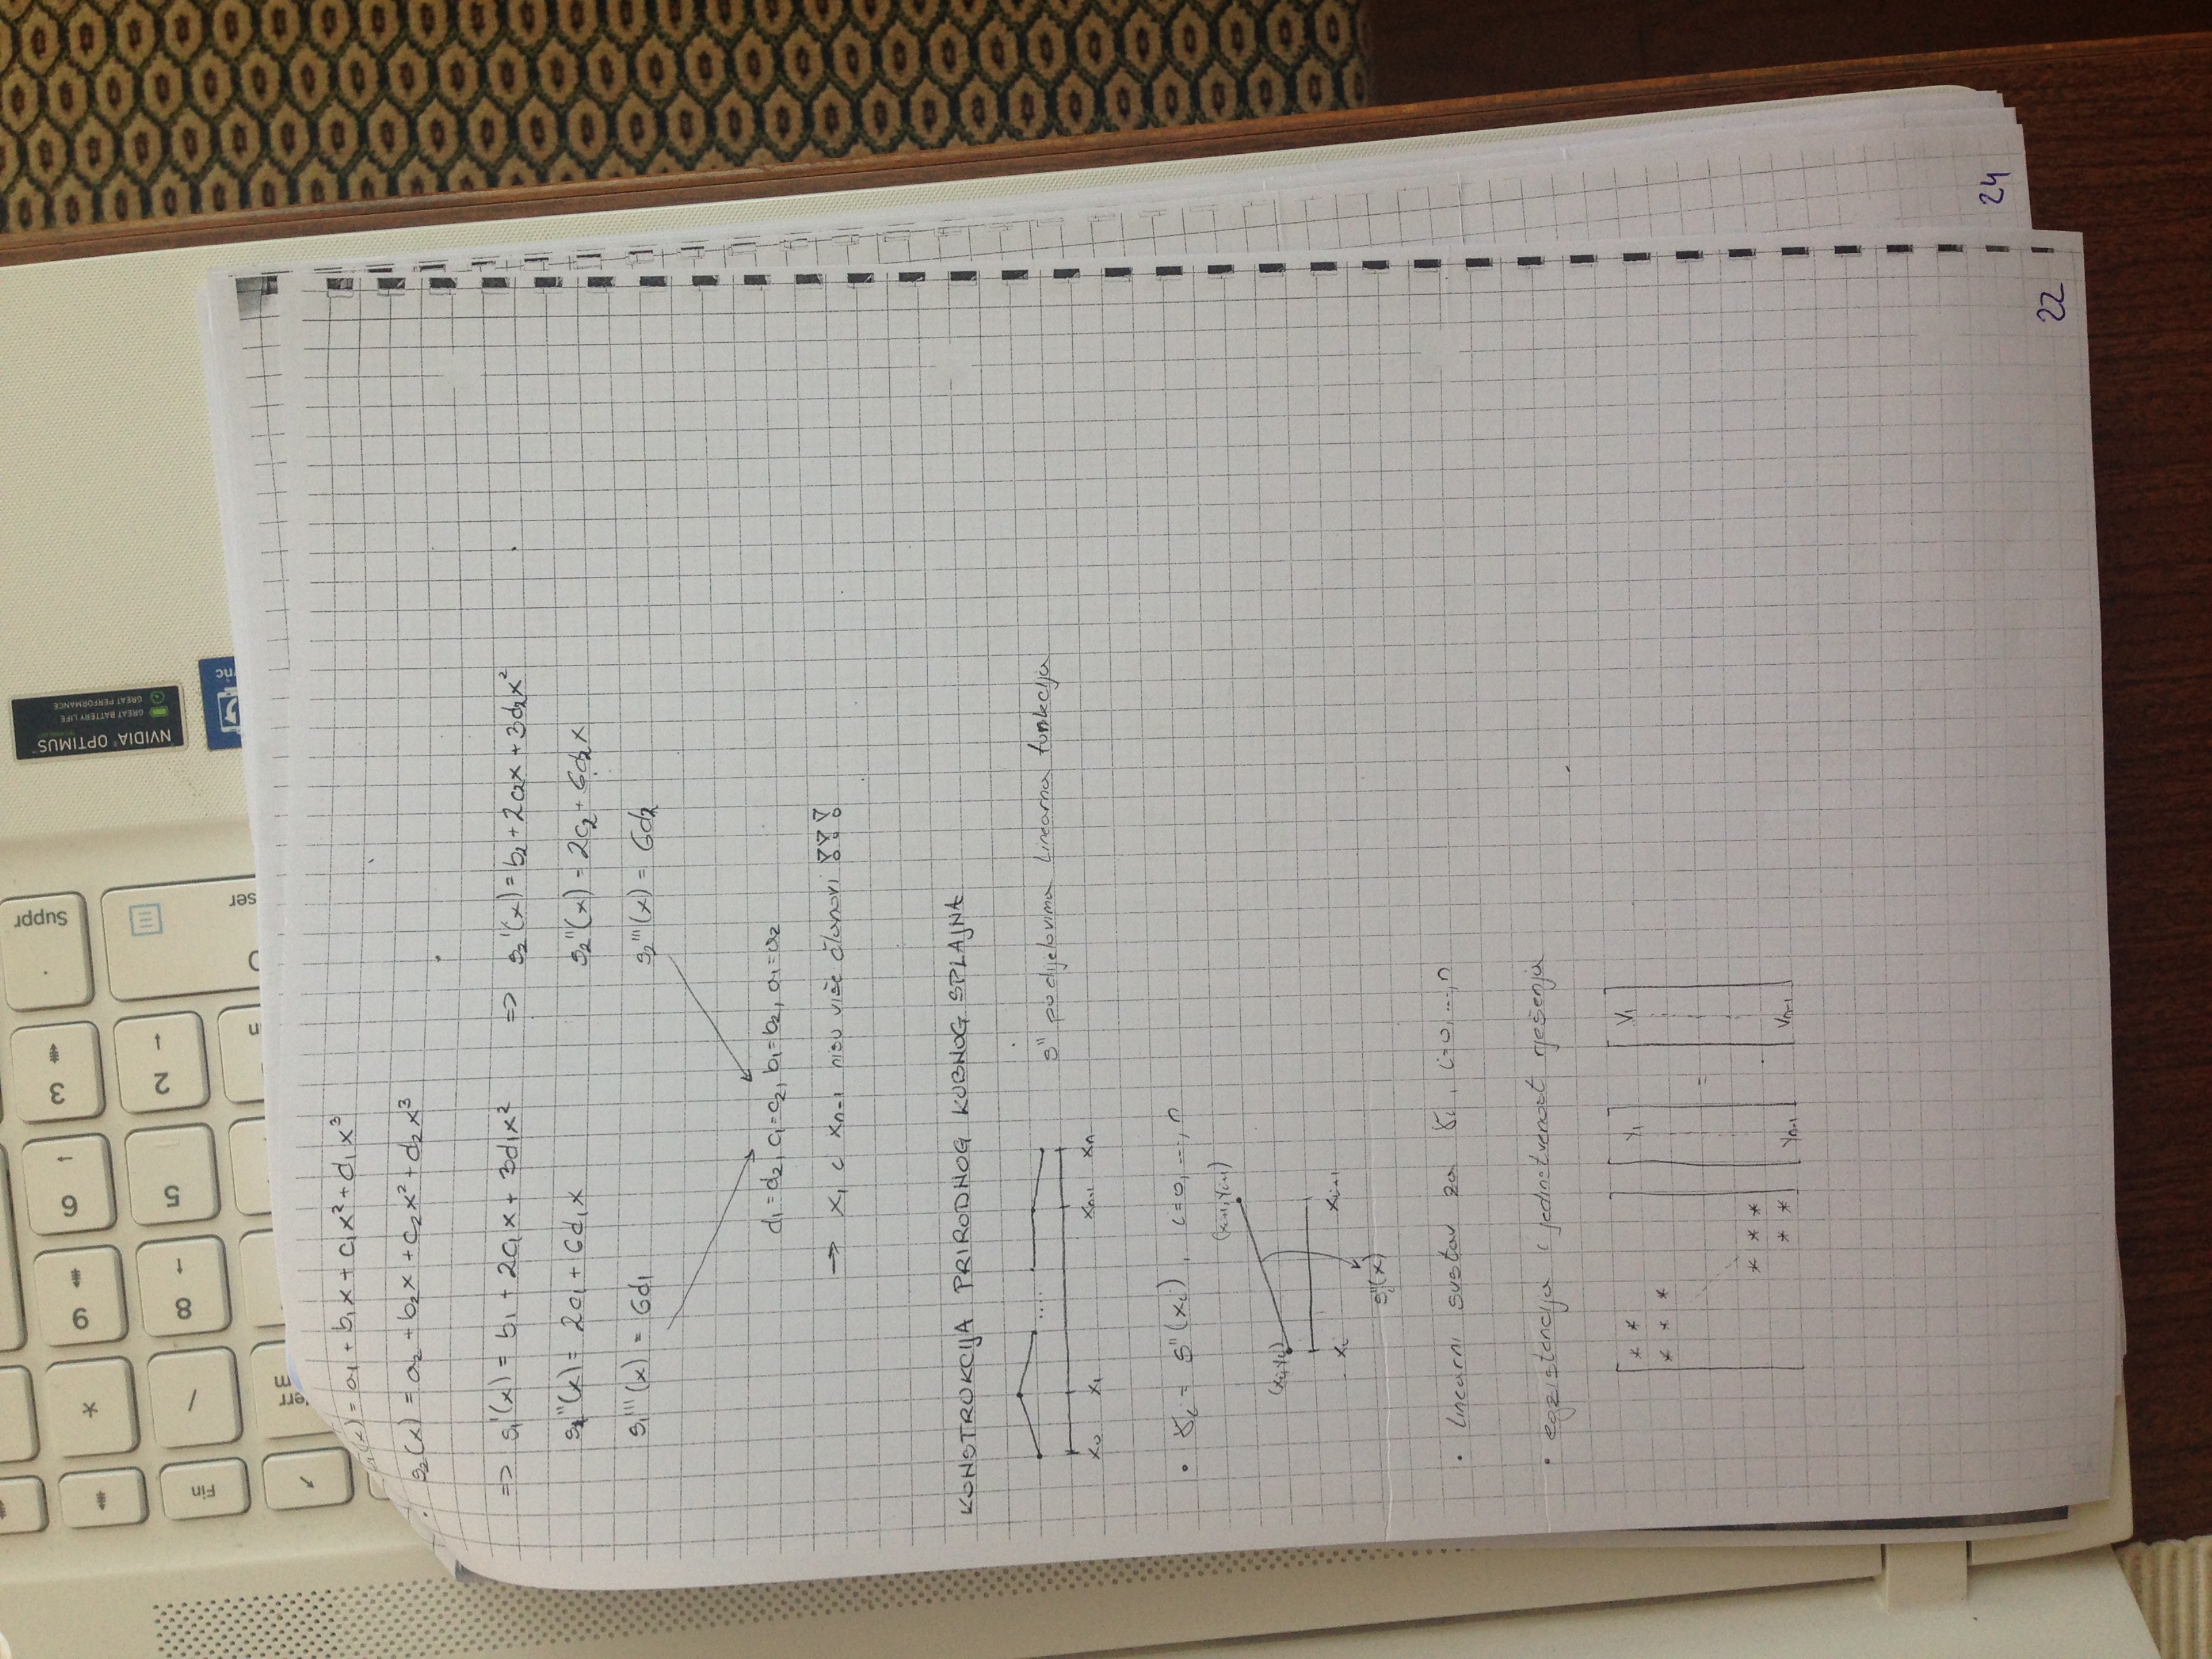 Suppr
3
6
9
*
2
5
8
/
Fin
NVIDIA® OPTIMUS™
GREAT BATTERY LIFE
GREAT PERFORMANCE
(x) = a₁ + b₁x + c₁x² + d₁x³
s₂(x) = a₂ + b₂x + c₂x² + d₂x³
=> s₁'(x) = b₁ + 2c₁x + 3d₁x² => s₂'(x) = b₂ + 2c₂x + 3d₂x²
s₁''(x) = 2c₁ + 6d₁x s₂''(x) = 2c₂ + 6d₂x
s₁'''(x) = 6d₁ s₂'''(x) = 6d₂
d₁=d₂, c₁=c₂, b₁=b₂, a₁=a₂
→ x₁ i xₙ₋₁ nisu više članovi !!!
KONSTRUKCIJA PRIRODNOG KUBNOG SPLAJNA
..... s'' po dijelovima linearna funkcija
x₀ x₁ xₙ₋₁ xₙ
• γᵢ = s''(xᵢ), i=0,...,n
(xᵢ₊₁, γᵢ₊₁)
(xᵢ, γᵢ)
xᵢ xᵢ₊₁
sᵢ''(x)
• linearni sustav za γᵢ, i=0,...,n
• egzistencija i jedinstvenost rješenja
* * γ₁ v₁
* * *
=
* * *
* * γₙ₋₁ vₙ₋₁
24
22